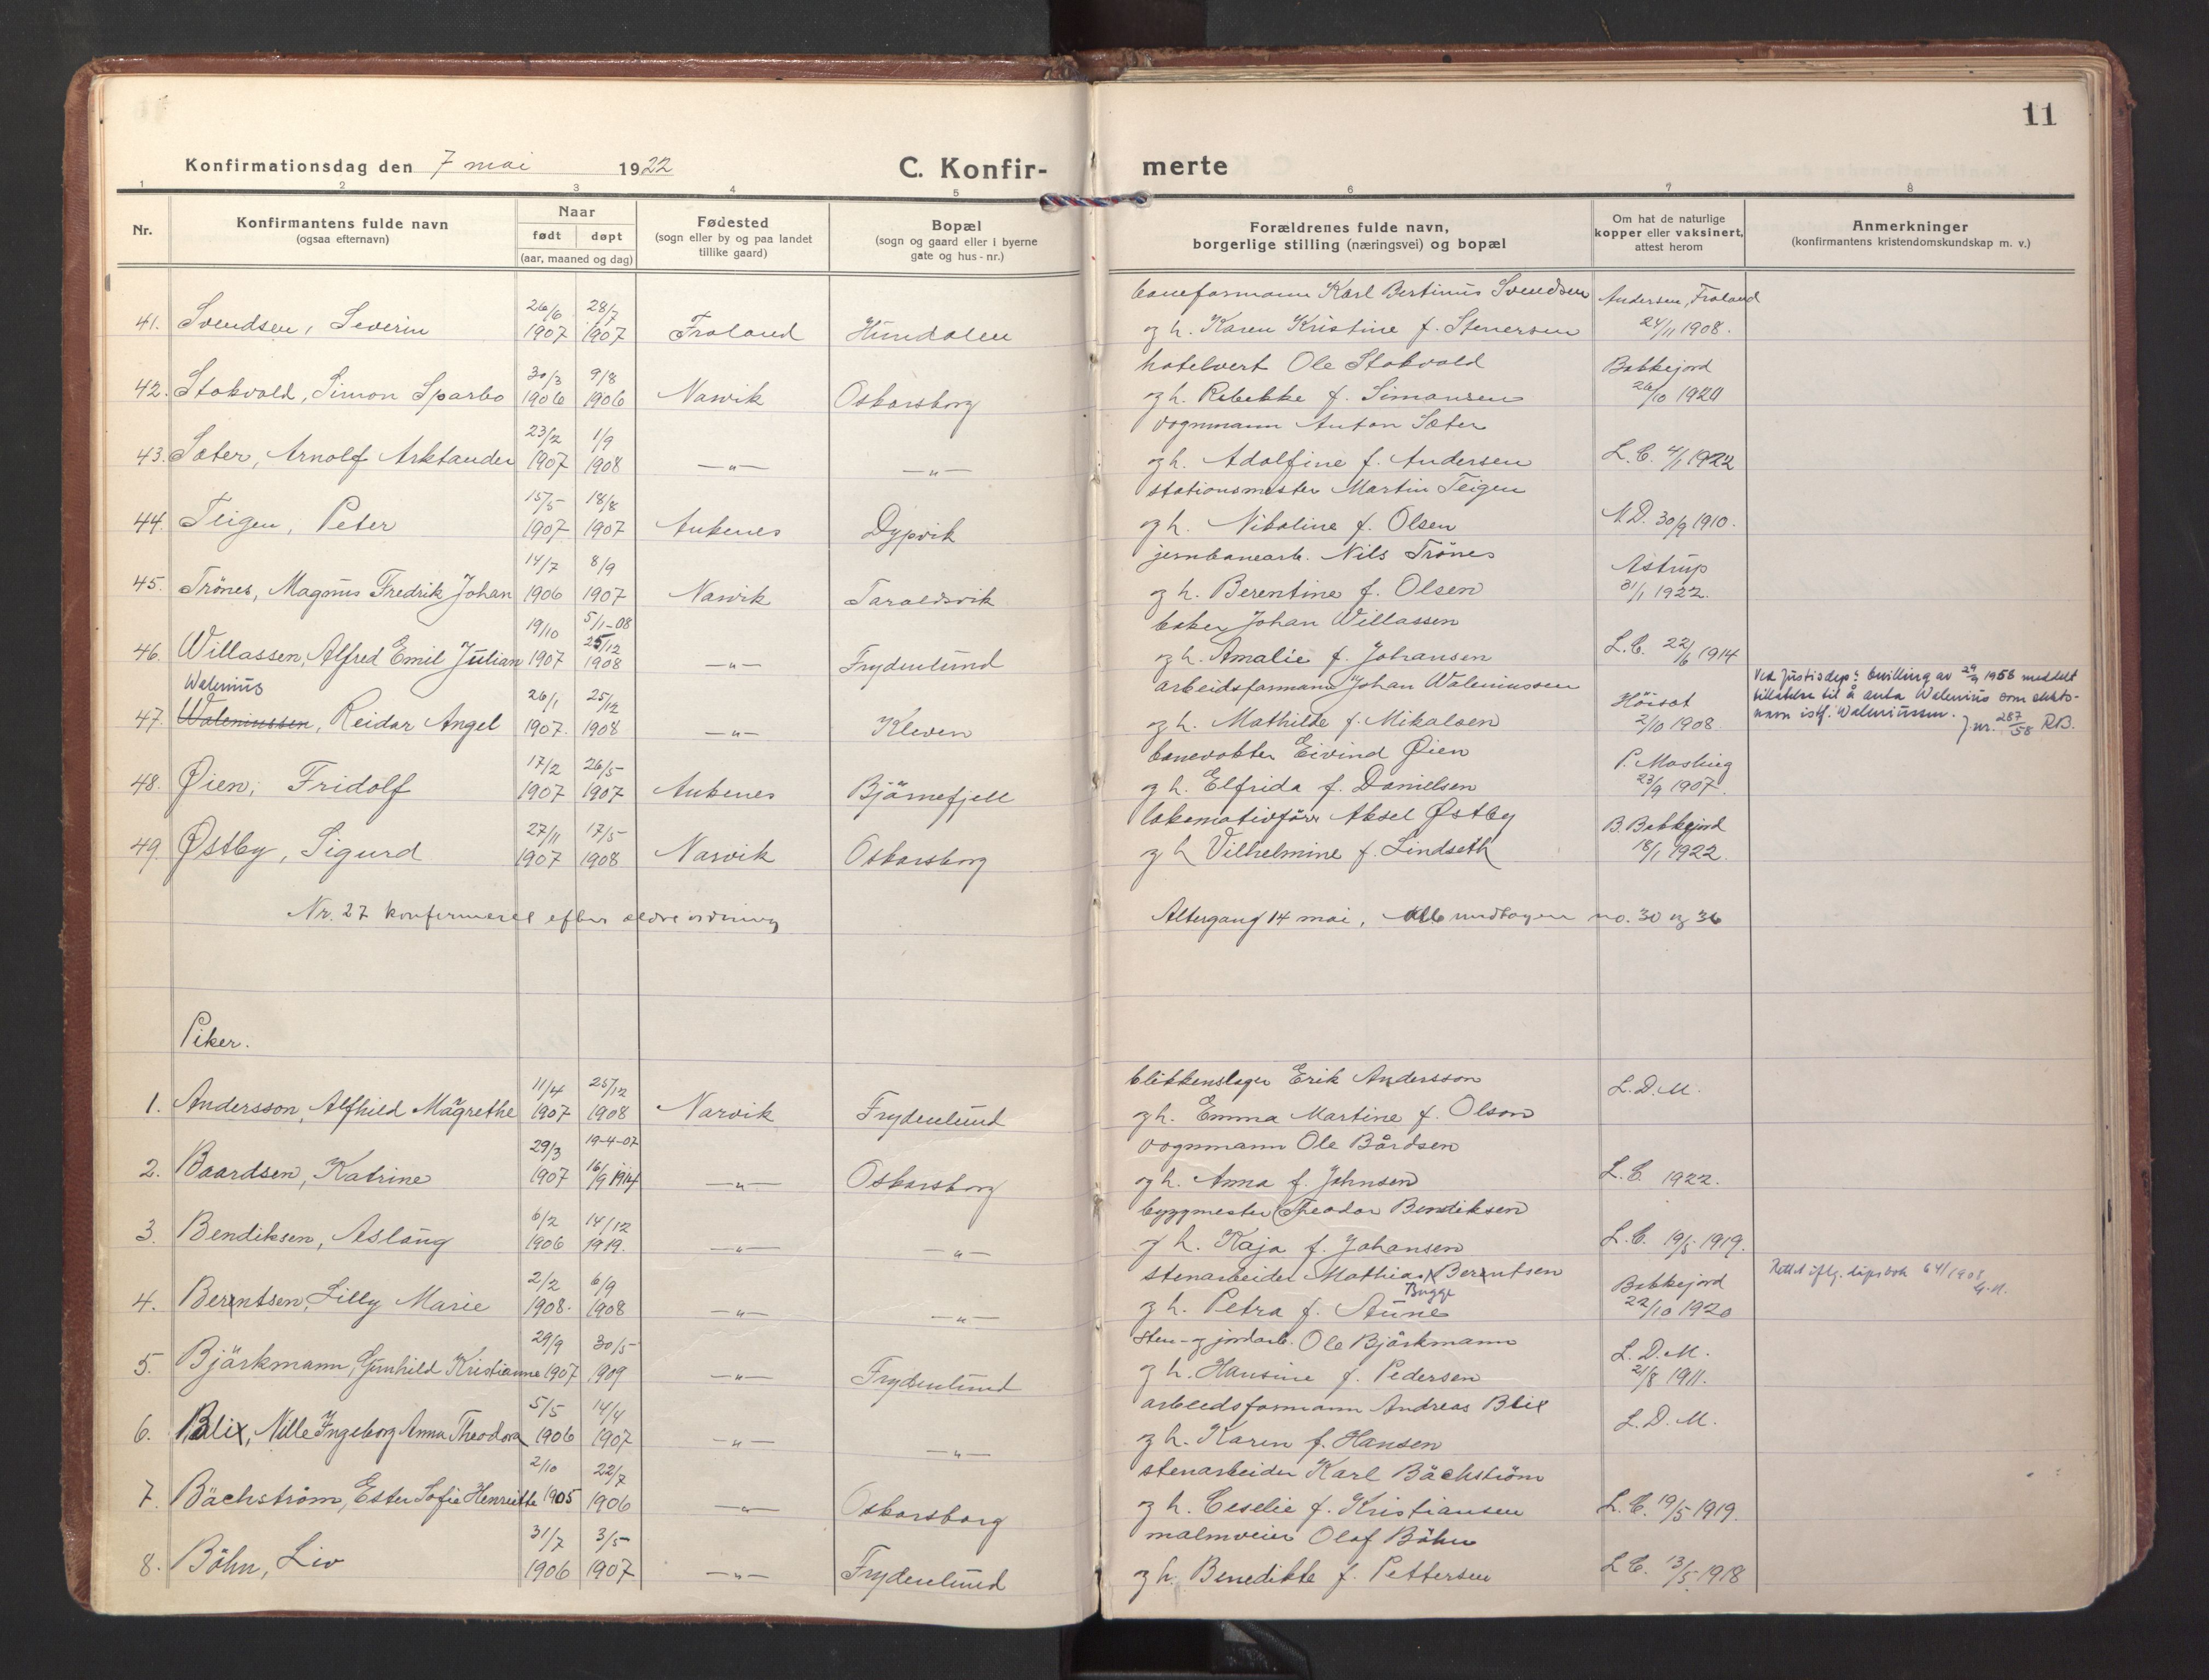 11
Konfirmationsdag den 7 mai 1922 C. Konfir- merte
1 2 3 4 5 6 7 8
Nr.
Konfirmantens fulde navn
(ogsaa efternavn)
Naar
født døpt
(aar, maaned og dag)
Fødested
(sogn eller by og paa landet
tillike gaard)
Bopæl
(sogn og gaard eller i byerne
gate og hus-nr.)
Forældrenes fulde navn,
borgerlige stilling (næringsvei) og bopæl
Om hat de naturlige
kopper eller vaksinert,
attest herom
Anmerkninger
(konfirmantens kristendomskundskap m. v.)
26/6 28/7 baneformann Karl Bertinus Svendsen Andersen, Fraland
41. Svendsen, Severin 1907 1907 Fraland Hundalen og h. Karen Kristine f. Stenersen 24/11 1908.
30/3 9/8 hotelvert Ole Stokvold Bakkejord
42. Stokvold, Simon Sparbo 1906 1906 Narvik Oskarsborg og h. Rebekke f. Simonsen 26/10 1920
23/2 1/9 vognmann Anton Sæter
43. Sæter, Arnolf Arktander 1907 1908 —„— —„— og h. Adolfine f. Andersen L.C. 4/1 1922
15/5 18/8 stationsmester Martin Teigen
44. Teigen, Peter 1907 1907 Ankenes Dypvik og h. Nikoline f. Olsen N.D. 30/9 1910.
14/7 8/9 jernbanearb. Nils Trönes Astrup
45. Trönes, Magnus Fredrik Johan 1906 1907 Narvik Taraldsvik og h. Berentine f. Olsen 31/1 1922.
19/10 5/1-08 25/12 baker Johan Willassen
46. Willassen, Alfred Emil Julian 1907 1908 —„— Frydenlund og h. Amalie f. Johansen L.C. 22/6 1914
Walenius 26/1 25/12 arbeidsformann Johan Waleniussen Höisæt
47. Waleniussen, Reidar Angel 1907. 1908 —„— Kleven og h. Mathilde f. Mikalsen 2/10 1908.
Ved Justisdep.s bevilling av 29/9 1958 meddelt
tillatelse til å anta Walenius som slekts-
navn istf. Waleniussen.
J.nr. 287/58 RB.
17/2 26/5 banevokter Eivind Øien P. Mosling
48. Øien, Fridolf 1907 1907 Ankenes Björnefjell og h. Elfrida f. Danielsen 23/9 1907.
27/11 17/5 lokomotivförer Aksel Østby B. Bakkejord
49. Østby, Sigurd 1907 1908 Narvik Oskarsborg og h Vilhelmine f. Lindseth 18/1 1922.
Nr. 27 konfirmeret efter ældre ordning Altergang 14 mai, alle undtagen no. 30 og 36
Piker.
11/4 25/12 blikkenslager Erik Andersson L.D.M.
1. Andersson, Alfhild Magrethe 1907 1908 Narvik Frydenlund og h. Emma Martine f. Olson
29/3 19-4-07 vognmann Ole Bårdsen
2. Baardsen, Katrine 1907 16/9 1914 —„— Oskarsborg og h. Anna f. Johnsen L.C. 1922.
6/2 14/12 byggmester Theodor Bendiksen
3. Bendiksen, Aslaug 1906 1919. —„— —„— og h. Kaja f. Johansen L.C. 19/5 1919.
2/2 6/9 stenarbeider Mathias Berntsen Bakkejord Rettet iflg. dåpsbok 64/1908
4. Berntsen, Lilly Marie 1908. 1908 —„— —„— og h. Petra f. Aune Bugge 22/10 1920
29/9 30/5 sten- og jordarb. Ole Björkmann L.D.M.
5. Björkmann, Gunhild Kristianne 1907 1909 —„— Frydenlund og h. Hansine f. Pedersen 21/8 1911.
5/5 14/4 arbeidsformann Andreas Blix L.D.M.
6. Blix, Nille Ingeborg Anna Theodora 1906 1907 —„— —„— og h. Karen f. Hansen
2/10 22/7 stenarbeider Karl Bäckström
7. Bäckström, Ester Sofie Henriette 1905 1906 —„— Oskarsborg og h. Ceselie f. Kristiansen L.C. 19/5 1919.
31/7 3/5 malmveier Olaf Böhn
8. Böhn, Liv 1906 1907 —„— Frydenlund og h. Benedikte f. Pettersen L.C. 13/5 1918